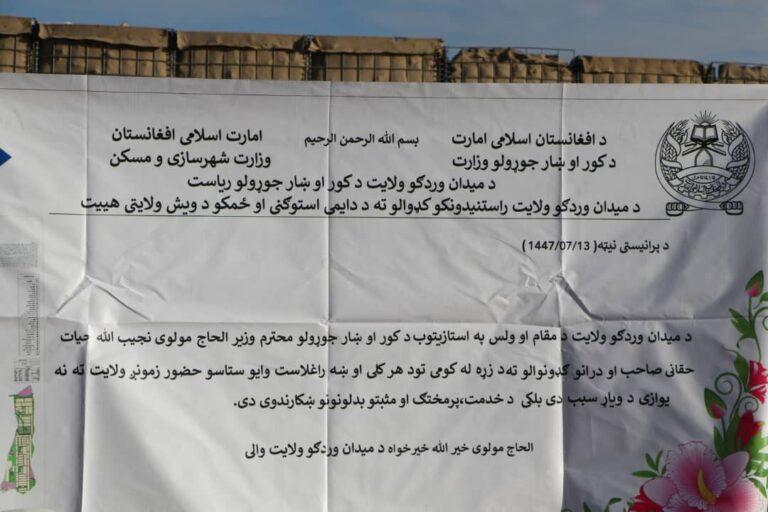 بسم الله الرحمن الرحیم
د افغانستان اسلامي امارت
د کور او ښار جوړولو وزارت
امارت اسلامی افغانستان
وزارت شهرسازی و مسکن
د میدان وردګو ولایت د کور او ښار جوړولو ریاست
د میدان وردګو ولایت راستنیدونکو کډوالو ته د دایمي استوګنې او ځمکو د ویش ولایتي هییت
د پرانیستي نیټه( 1447/07/13)
د میدان وردګو ولایت د مقام او ولس په استازیتوب د کور او ښار جوړولو محترم وزیر الحاج مولوي نجیب الله حیات
حقاني صاحب او درانو کډونوالو ته‌د زړه له کومي تود هر کلی او ښه راغلاست وایو ستاسو حضور زمونږ ولایت ته نه
یوازي د ویاړ سبب دی بلکي د خدمت،پرمختګ او مثبتو بدلونونو ښکارندوی دی.
الحاج مولوي خیر الله خیرخواه د میدان وردګو ولایت والي